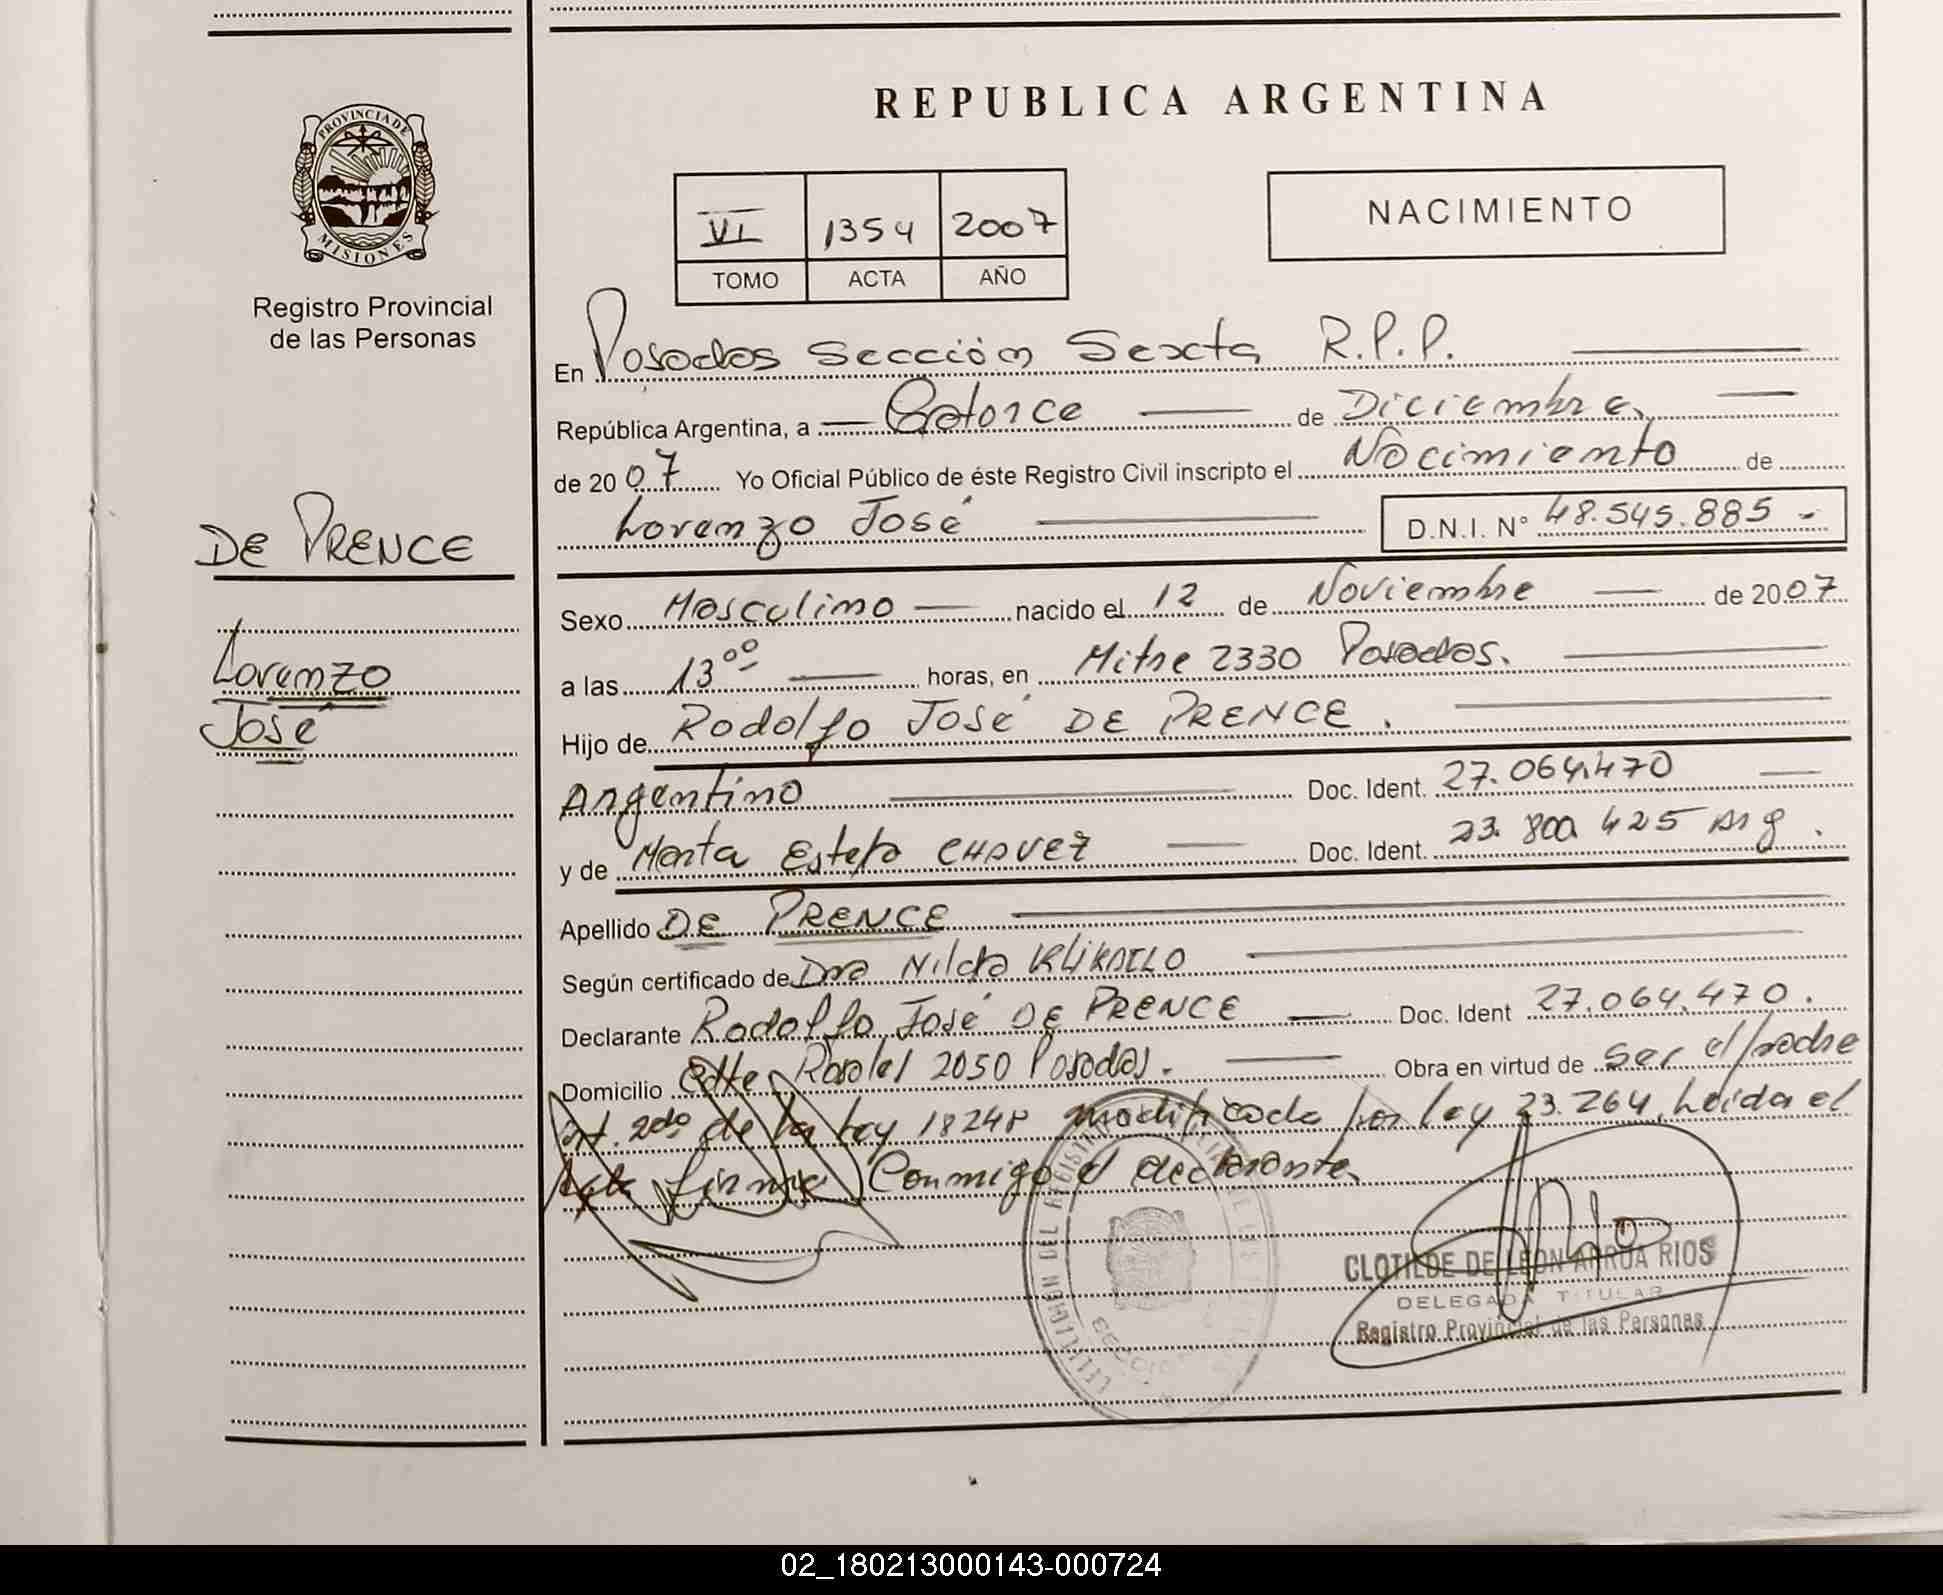 REPUBLICA ARGENTINA
PROVINCIA DE
MISIONES
Registro Provincial
de las Personas
VI 1354 2007
TOMO ACTA AÑO
NACIMIENTO
En Posadas Sección Sexta R.P.P.
República Argentina, a Catorce de Diciembre
de 2007 Yo Oficial Público de éste Registro Civil inscripto el Nacimiento de
Lorenzo José D.N.I. N° 48.545.885 -
DE PRENCE
Lorenzo
José
Sexo Masculino nacido el 12 de Noviembre de 2007
a las 13 00 horas, en Mitre 2330 Posadas.
Hijo de Rodolfo José DE PRENCE.
Argentino Doc. Ident. 27.064.470
y de Marta Estela CHAVEZ Doc. Ident. 23.800.425 Arg.
Apellido DE PRENCE
Según certificado de Dra Nilda
Declarante Rodolfo José DE PRENCE Doc. Ident 27.064.470.
Domicilio Rosales 2050 Posadas. Obra en virtud de ser el padre
Art. 2do de la Ley 18248 modificada por Ley 23.264. Leida el
Acta firma Conmigo el declarante
CLOTILDE DE LEON ARRUA RIOS
DELEGADA TITULAR
Registro Provincial de las Personas
02_180213000143-000724